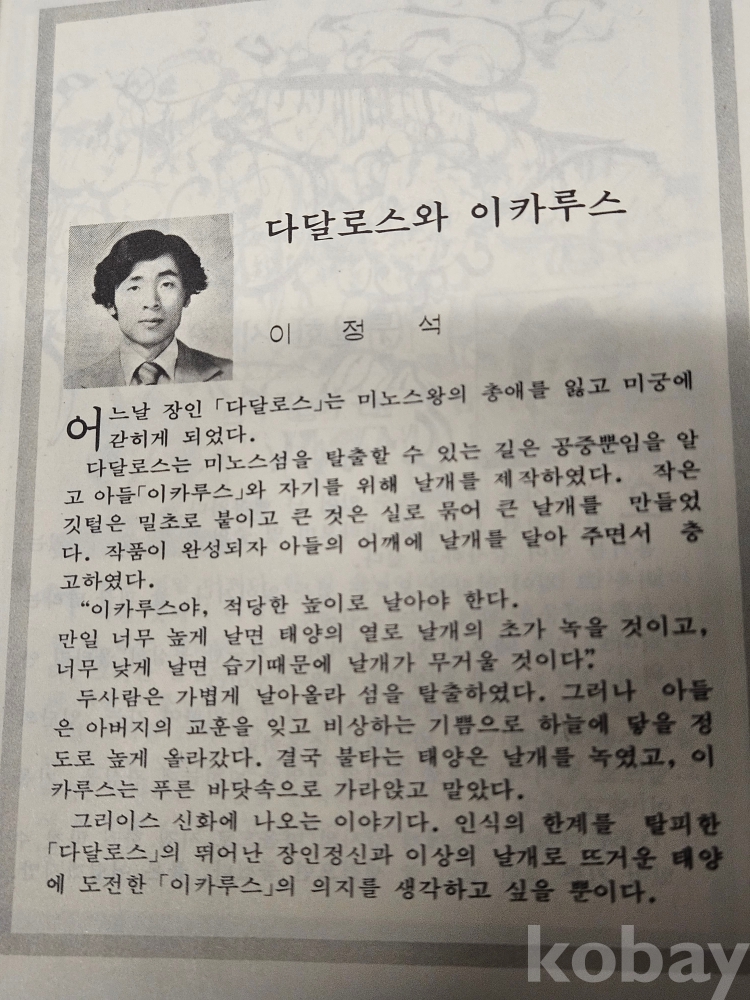 다달로스와 이카루스
이 정 석
어느날 장인 「다달로스」는 미노스왕의 총애를 잃고 미궁에
갇히게 되었다.
다달로스는 미노스섬을 탈출할 수 있는 길은 공중뿐임을 알
고 아들「이카루스」와 자기를 위해 날개를 제작하였다. 작은
깃털은 밀초로 붙이고 큰 것은 실로 묶어 큰 날개를 만들었
다. 작품이 완성되자 아들의 어깨에 날개를 달아 주면서 충
고하였다.
“이카루스야, 적당한 높이로 날아야 한다.
만일 너무 높게 날면 태양의 열로 날개의 초가 녹을 것이고,
너무 낮게 날면 습기때문에 날개가 무거울 것이다”.
두사람은 가볍게 날아올라 섬을 탈출하였다. 그러나 아들
은 아버지의 교훈을 잊고 비상하는 기쁨으로 하늘에 닿을 정
도로 높게 올라갔다. 결국 불타는 태양은 날개를 녹였고, 이
카루스는 푸른 바닷속으로 가라앉고 말았다.
그리이스 신화에 나오는 이야기다. 인식의 한계를 탈피한
「다달로스」의 뛰어난 장인정신과 이상의 날개로 뜨거운 태양
에 도전한 「이카루스」의 의지를 생각하고 싶을 뿐이다.
kobay